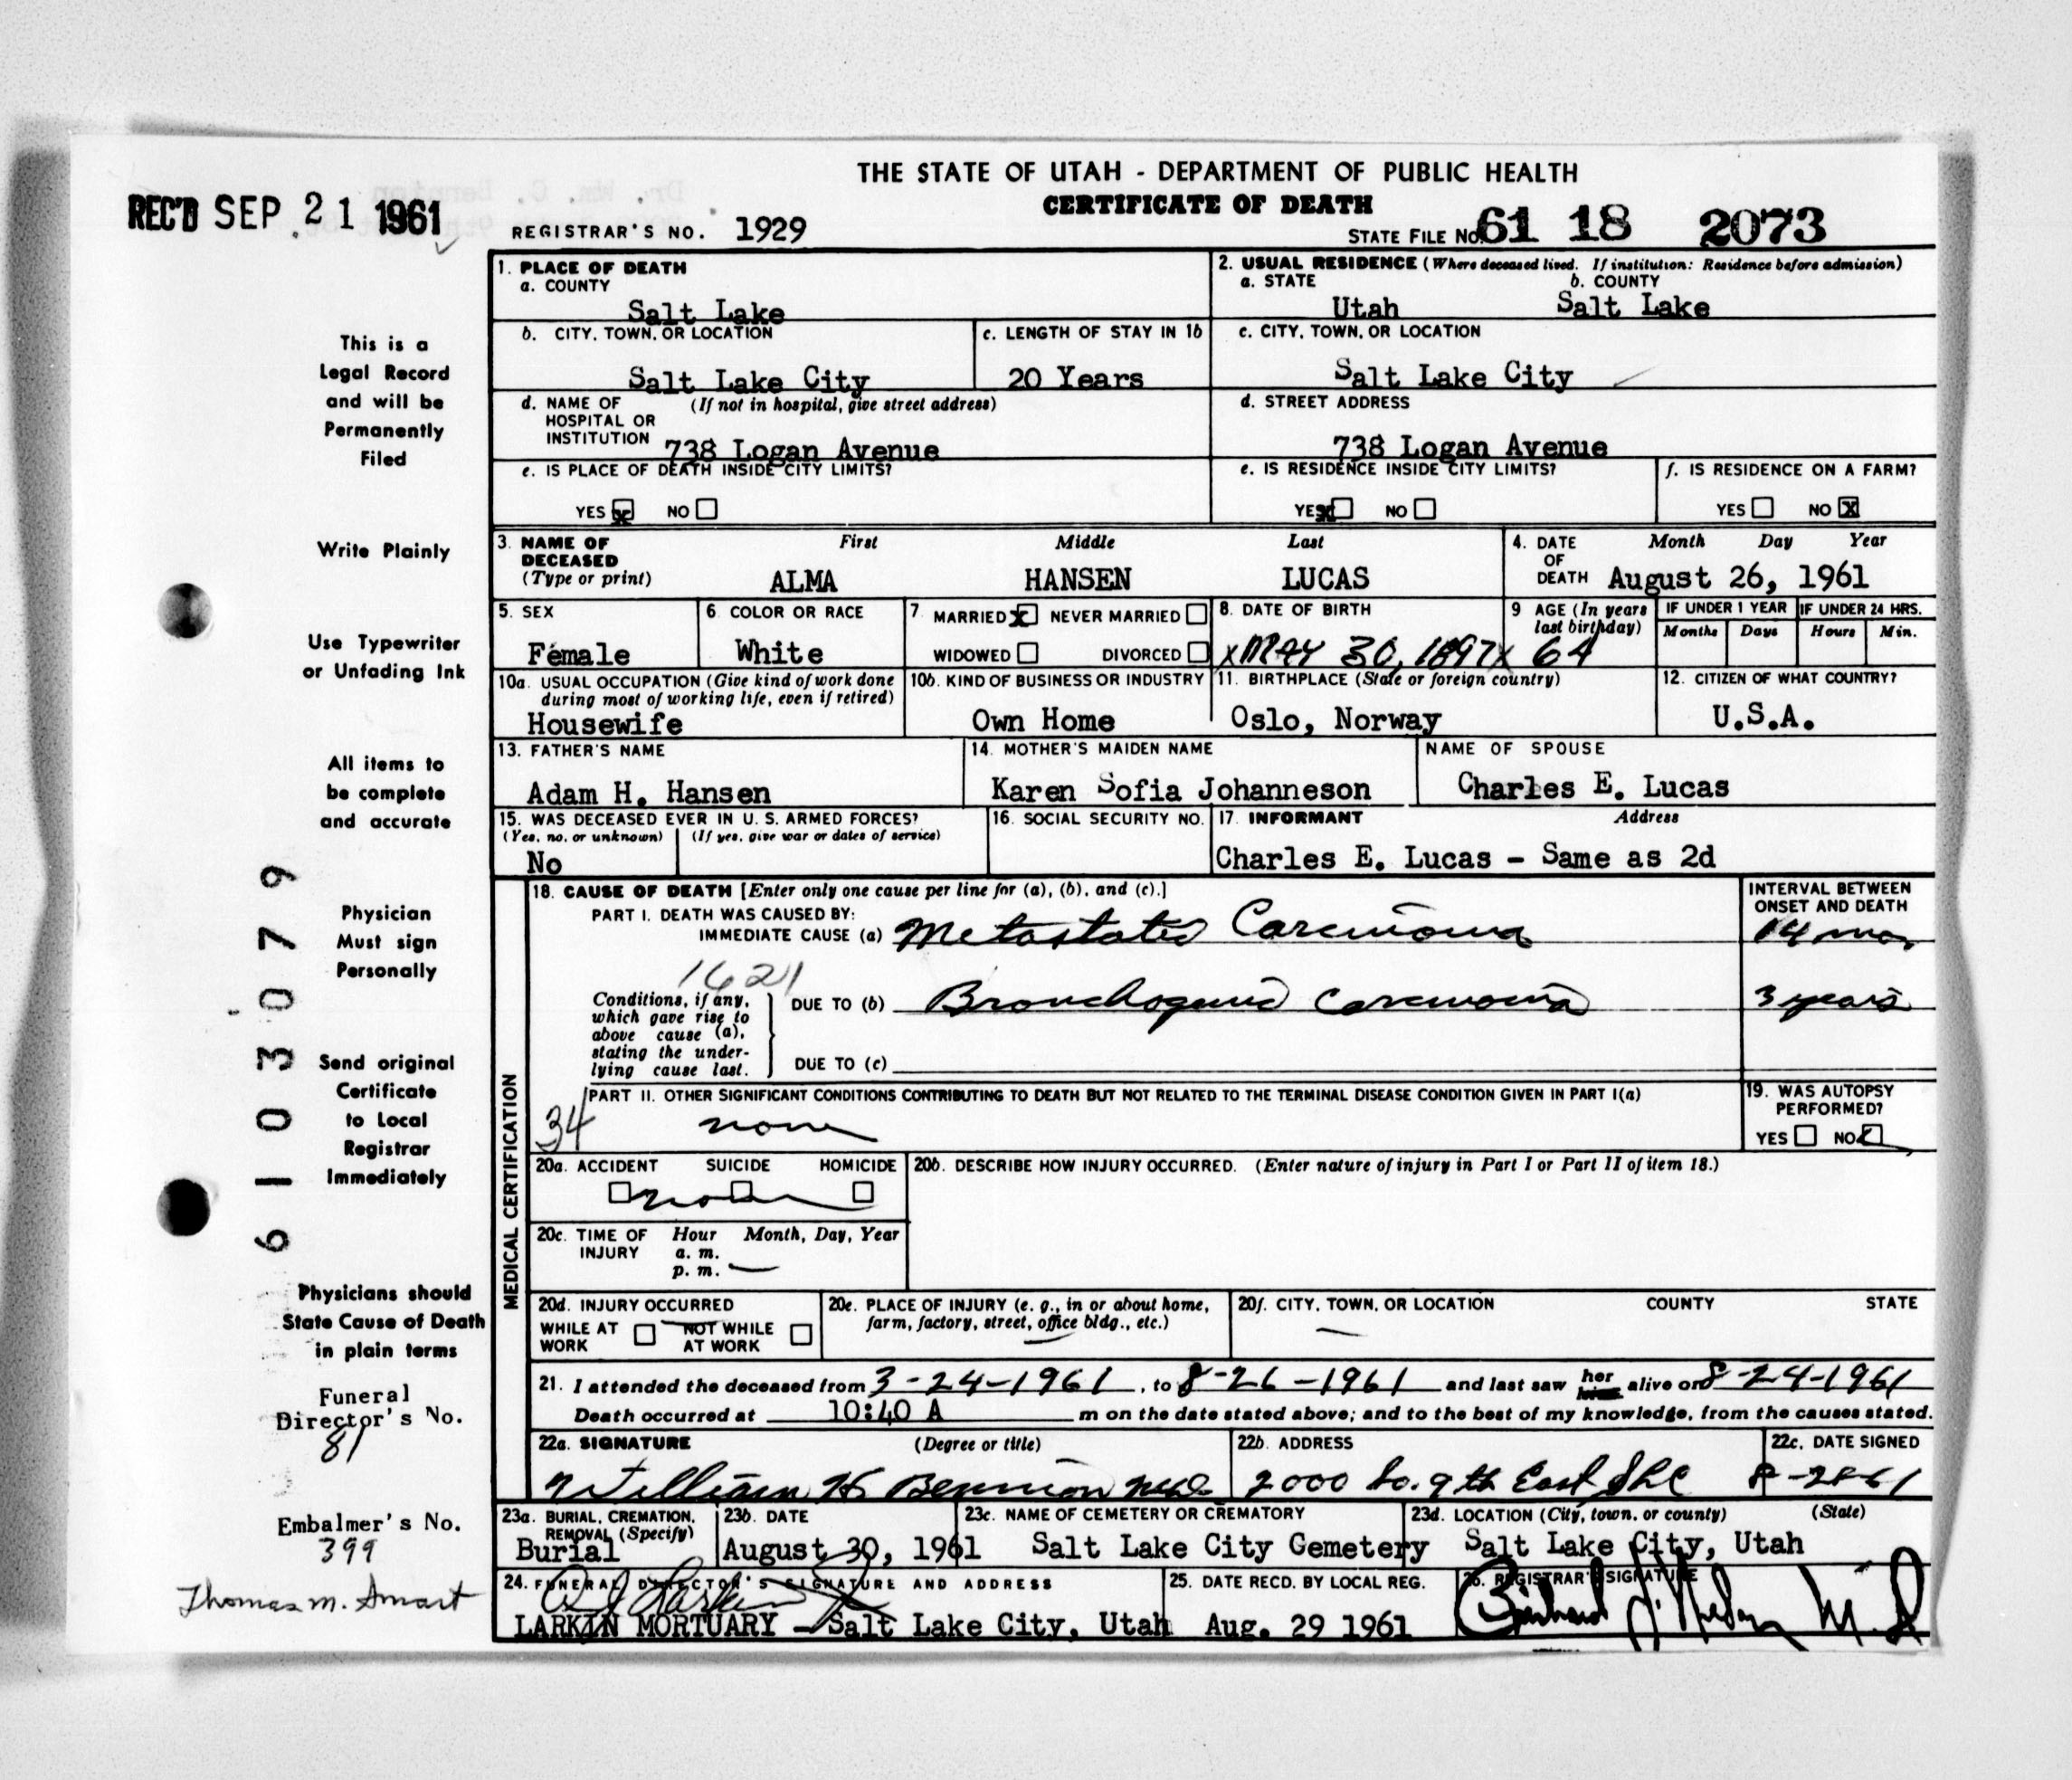 THE STATE OF UTAH - DEPARTMENT OF PUBLIC HEALTH
CERTIFICATE OF DEATH
REC'D SEP 21 1961
REGISTRAR'S NO. 1929
STATE FILE NO. 61 18 2073
1. PLACE OF DEATH
a. COUNTY
Salt Lake
2. USUAL RESIDENCE (Where deceased lived. If institution: Residence before admission)
a. STATE b. COUNTY
Utah Salt Lake
b. CITY, TOWN, OR LOCATION
Salt Lake City
c. LENGTH OF STAY IN 1b
20 Years
c. CITY, TOWN, OR LOCATION
Salt Lake City
d. NAME OF (If not in hospital, give street address)
HOSPITAL OR
INSTITUTION 738 Logan Avenue
d. STREET ADDRESS
738 Logan Avenue
e. IS PLACE OF DEATH INSIDE CITY LIMITS?
YES X NO
e. IS RESIDENCE INSIDE CITY LIMITS?
YES X NO
f. IS RESIDENCE ON A FARM?
YES NO X
3. NAME OF First Middle Last
DECEASED
(Type or print) ALMA HANSEN LUCAS
4. DATE Month Day Year
OF
DEATH August 26, 1961
5. SEX
Female
6 COLOR OR RACE
White
7. MARRIED X NEVER MARRIED
WIDOWED DIVORCED
8. DATE OF BIRTH
x MAY 30, 1897 x
9 AGE (In years
last birthday)
64
IF UNDER 1 YEAR IF UNDER 24 HRS.
Months Days Hours Min.
10a. USUAL OCCUPATION (Give kind of work done
during most of working life, even if retired)
Housewife
10b. KIND OF BUSINESS OR INDUSTRY
Own Home
11. BIRTHPLACE (State or foreign country)
Oslo, Norway
12. CITIZEN OF WHAT COUNTRY?
U.S.A.
13. FATHER'S NAME
Adam H. Hansen
14. MOTHER'S MAIDEN NAME
Karen Sofia Johanneson
NAME OF SPOUSE
Charles E. Lucas
15. WAS DECEASED EVER IN U. S. ARMED FORCES?
(Yes, no, or unknown) (If yes, give war or dates of service)
No
16. SOCIAL SECURITY NO.
17. INFORMANT Address
Charles E. Lucas - Same as 2d
MEDICAL CERTIFICATION
18. CAUSE OF DEATH [Enter only one cause per line for (a), (b), and (c).]
INTERVAL BETWEEN
ONSET AND DEATH
PART I. DEATH WAS CAUSED BY:
IMMEDIATE CAUSE (a) Metastatic Carcinoma 14 mos
1621
Conditions, if any,
which gave rise to
above cause (a),
stating the under-
lying cause last.
DUE TO (b) Bronchogenic Carcinoma 3 years
DUE TO (c)
PART II. OTHER SIGNIFICANT CONDITIONS CONTRIBUTING TO DEATH BUT NOT RELATED TO THE TERMINAL DISEASE CONDITION GIVEN IN PART I(a)
34 none
19. WAS AUTOPSY
PERFORMED?
YES NO
20a. ACCIDENT SUICIDE HOMICIDE
none
20b. DESCRIBE HOW INJURY OCCURRED. (Enter nature of injury in Part I or Part II of item 18.)
20c. TIME OF Hour Month, Day, Year
INJURY a. m.
p. m. —
20d. INJURY OCCURRED
WHILE AT NOT WHILE
WORK AT WORK
20e. PLACE OF INJURY (e. g., in or about home,
farm, factory, street, office bldg., etc.)
20f. CITY, TOWN, OR LOCATION COUNTY STATE
—
21. I attended the deceased from 3-24-1961, to 8-26-1961 and last saw her him alive on 8-24-1961
Death occurred at 10:40 A m on the date stated above; and to the best of my knowledge, from the causes stated.
22a. SIGNATURE (Degree or title)
William H Bennion M.D.
22b. ADDRESS
2000 So. 9th East SLC
22c. DATE SIGNED
8-28-61
23a. BURIAL, CREMATION,
REMOVAL (Specify)
Burial
23b. DATE
August 30, 1961
23c. NAME OF CEMETERY OR CREMATORY
Salt Lake City Gemetery
23d. LOCATION (City, town, or county) (State)
Salt Lake City, Utah
24. FUNERAL DIRECTOR'S SIGNATURE AND ADDRESS
LARKIN MORTUARY - Salt Lake City, Utah
25. DATE RECD. BY LOCAL REG.
Aug. 29 1961
26. REGISTRAR'S SIGNATURE
This is a
Legal Record
and will be
Permanently
Filed
Write Plainly
Use Typewriter
or Unfading Ink
All items to
be complete
and accurate
Physician
Must sign
Personally
Send original
Certificate
to Local
Registrar
Immediately
Physicians should
State Cause of Death
in plain terms
Funeral
Director's No.
81
Embalmer's No.
399
Thomas M. Smart
61 03079